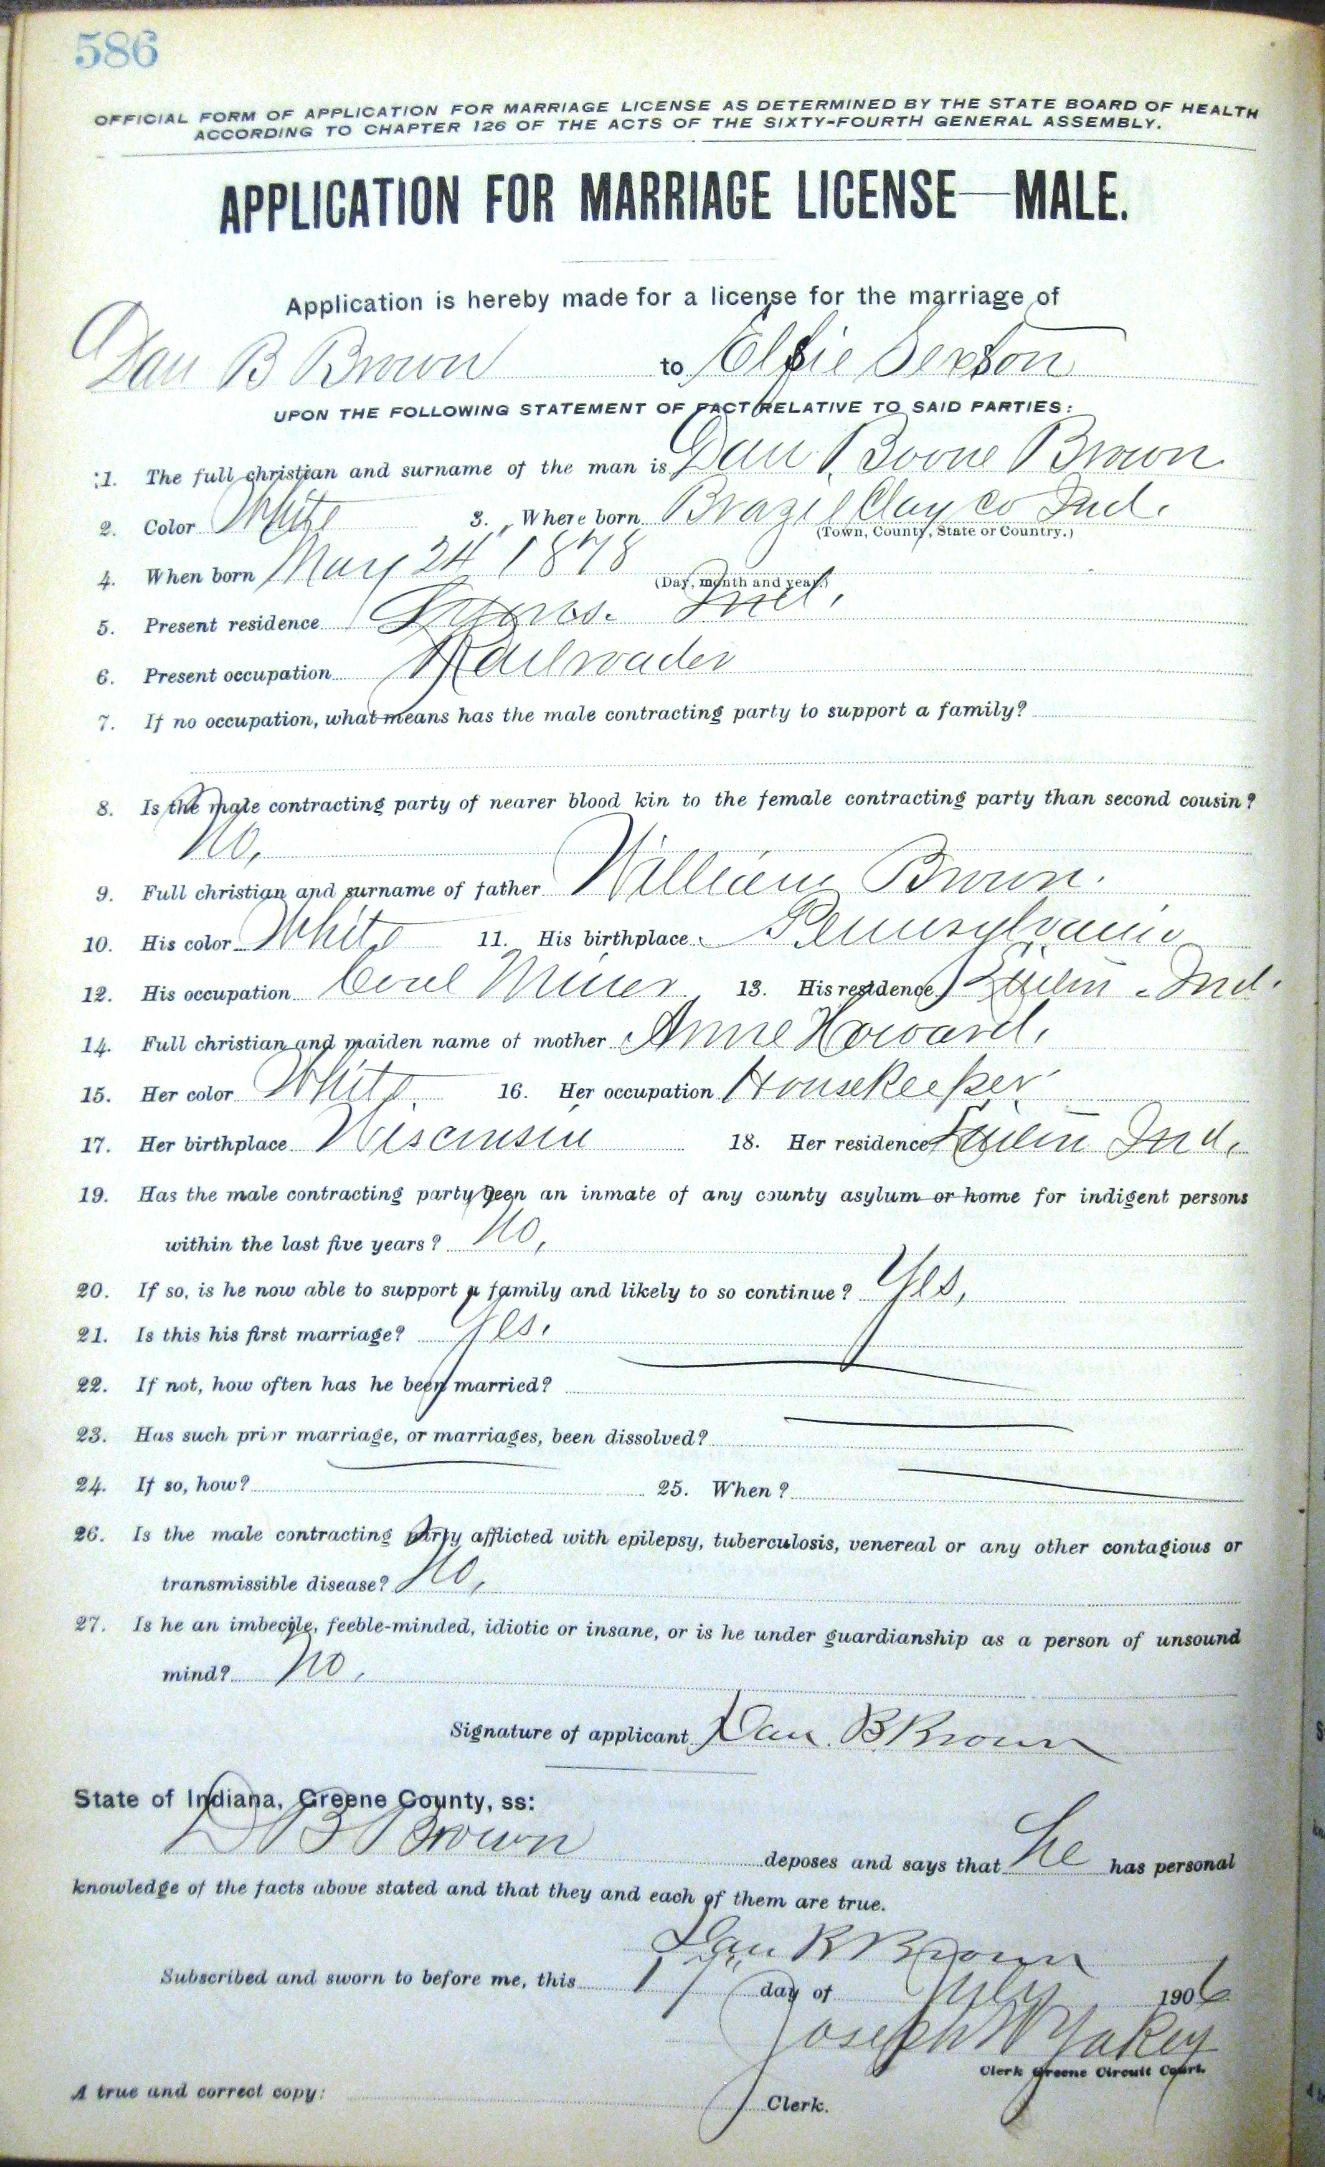 586
OFFICIAL FORM OF APPLICATION FOR MARRIAGE LICENSE AS DETERMINED BY THE STATE BOARD OF HEALTH
ACCORDING TO CHAPTER 126 OF THE ACTS OF THE SIXTY-FOURTH GENERAL ASSEMBLY.
APPLICATION FOR MARRIAGE LICENSE—MALE.
Application is hereby made for a license for the marriage of
Dan B Brown to Elsie Sexton
UPON THE FOLLOWING STATEMENT OF FACT RELATIVE TO SAID PARTIES:
1. The full christian and surname of the man is Dan Boone Brown
2. Color White 3. Where born Brazil Clay Co Ind.
(Town, County, State or Country.)
4. When born May 24, 1878
(Day, month and year.)
5. Present residence Lyons. Ind.
6. Present occupation Railroader
7. If no occupation, what means has the male contracting party to support a family?
8. Is the male contracting party of nearer blood kin to the female contracting party than second cousin?
No,
9. Full christian and surname of father William Brown.
10. His color White 11. His birthplace Pennsylvania
12. His occupation Coal Miner 13. His residence Ind.
14. Full christian and maiden name of mother Anne Howard.
15. Her color White 16. Her occupation Housekeeper
17. Her birthplace Wisconsin 18. Her residence Ind.
19. Has the male contracting party been an inmate of any county asylum or home for indigent persons
within the last five years? No,
20. If so, is he now able to support a family and likely to so continue? Yes,
21. Is this his first marriage? Yes.
22. If not, how often has he been married?
23. Has such prior marriage, or marriages, been dissolved?
24. If so, how? 25. When?
26. Is the male contracting party afflicted with epilepsy, tuberculosis, venereal or any other contagious or
transmissible disease? No,
27. Is he an imbecile, feeble-minded, idiotic or insane, or is he under guardianship as a person of unsound
mind? No,
Signature of applicant Dan. B Brown
State of Indiana, Greene County, ss:
D B Brown deposes and says that he has personal
knowledge of the facts above stated and that they and each of them are true.
Dan B Brown
Subscribed and sworn to before me, this 17" day of July 1906
Joseph W Yakey
Clerk Greene Circuit Court.
A true and correct copy: Clerk.